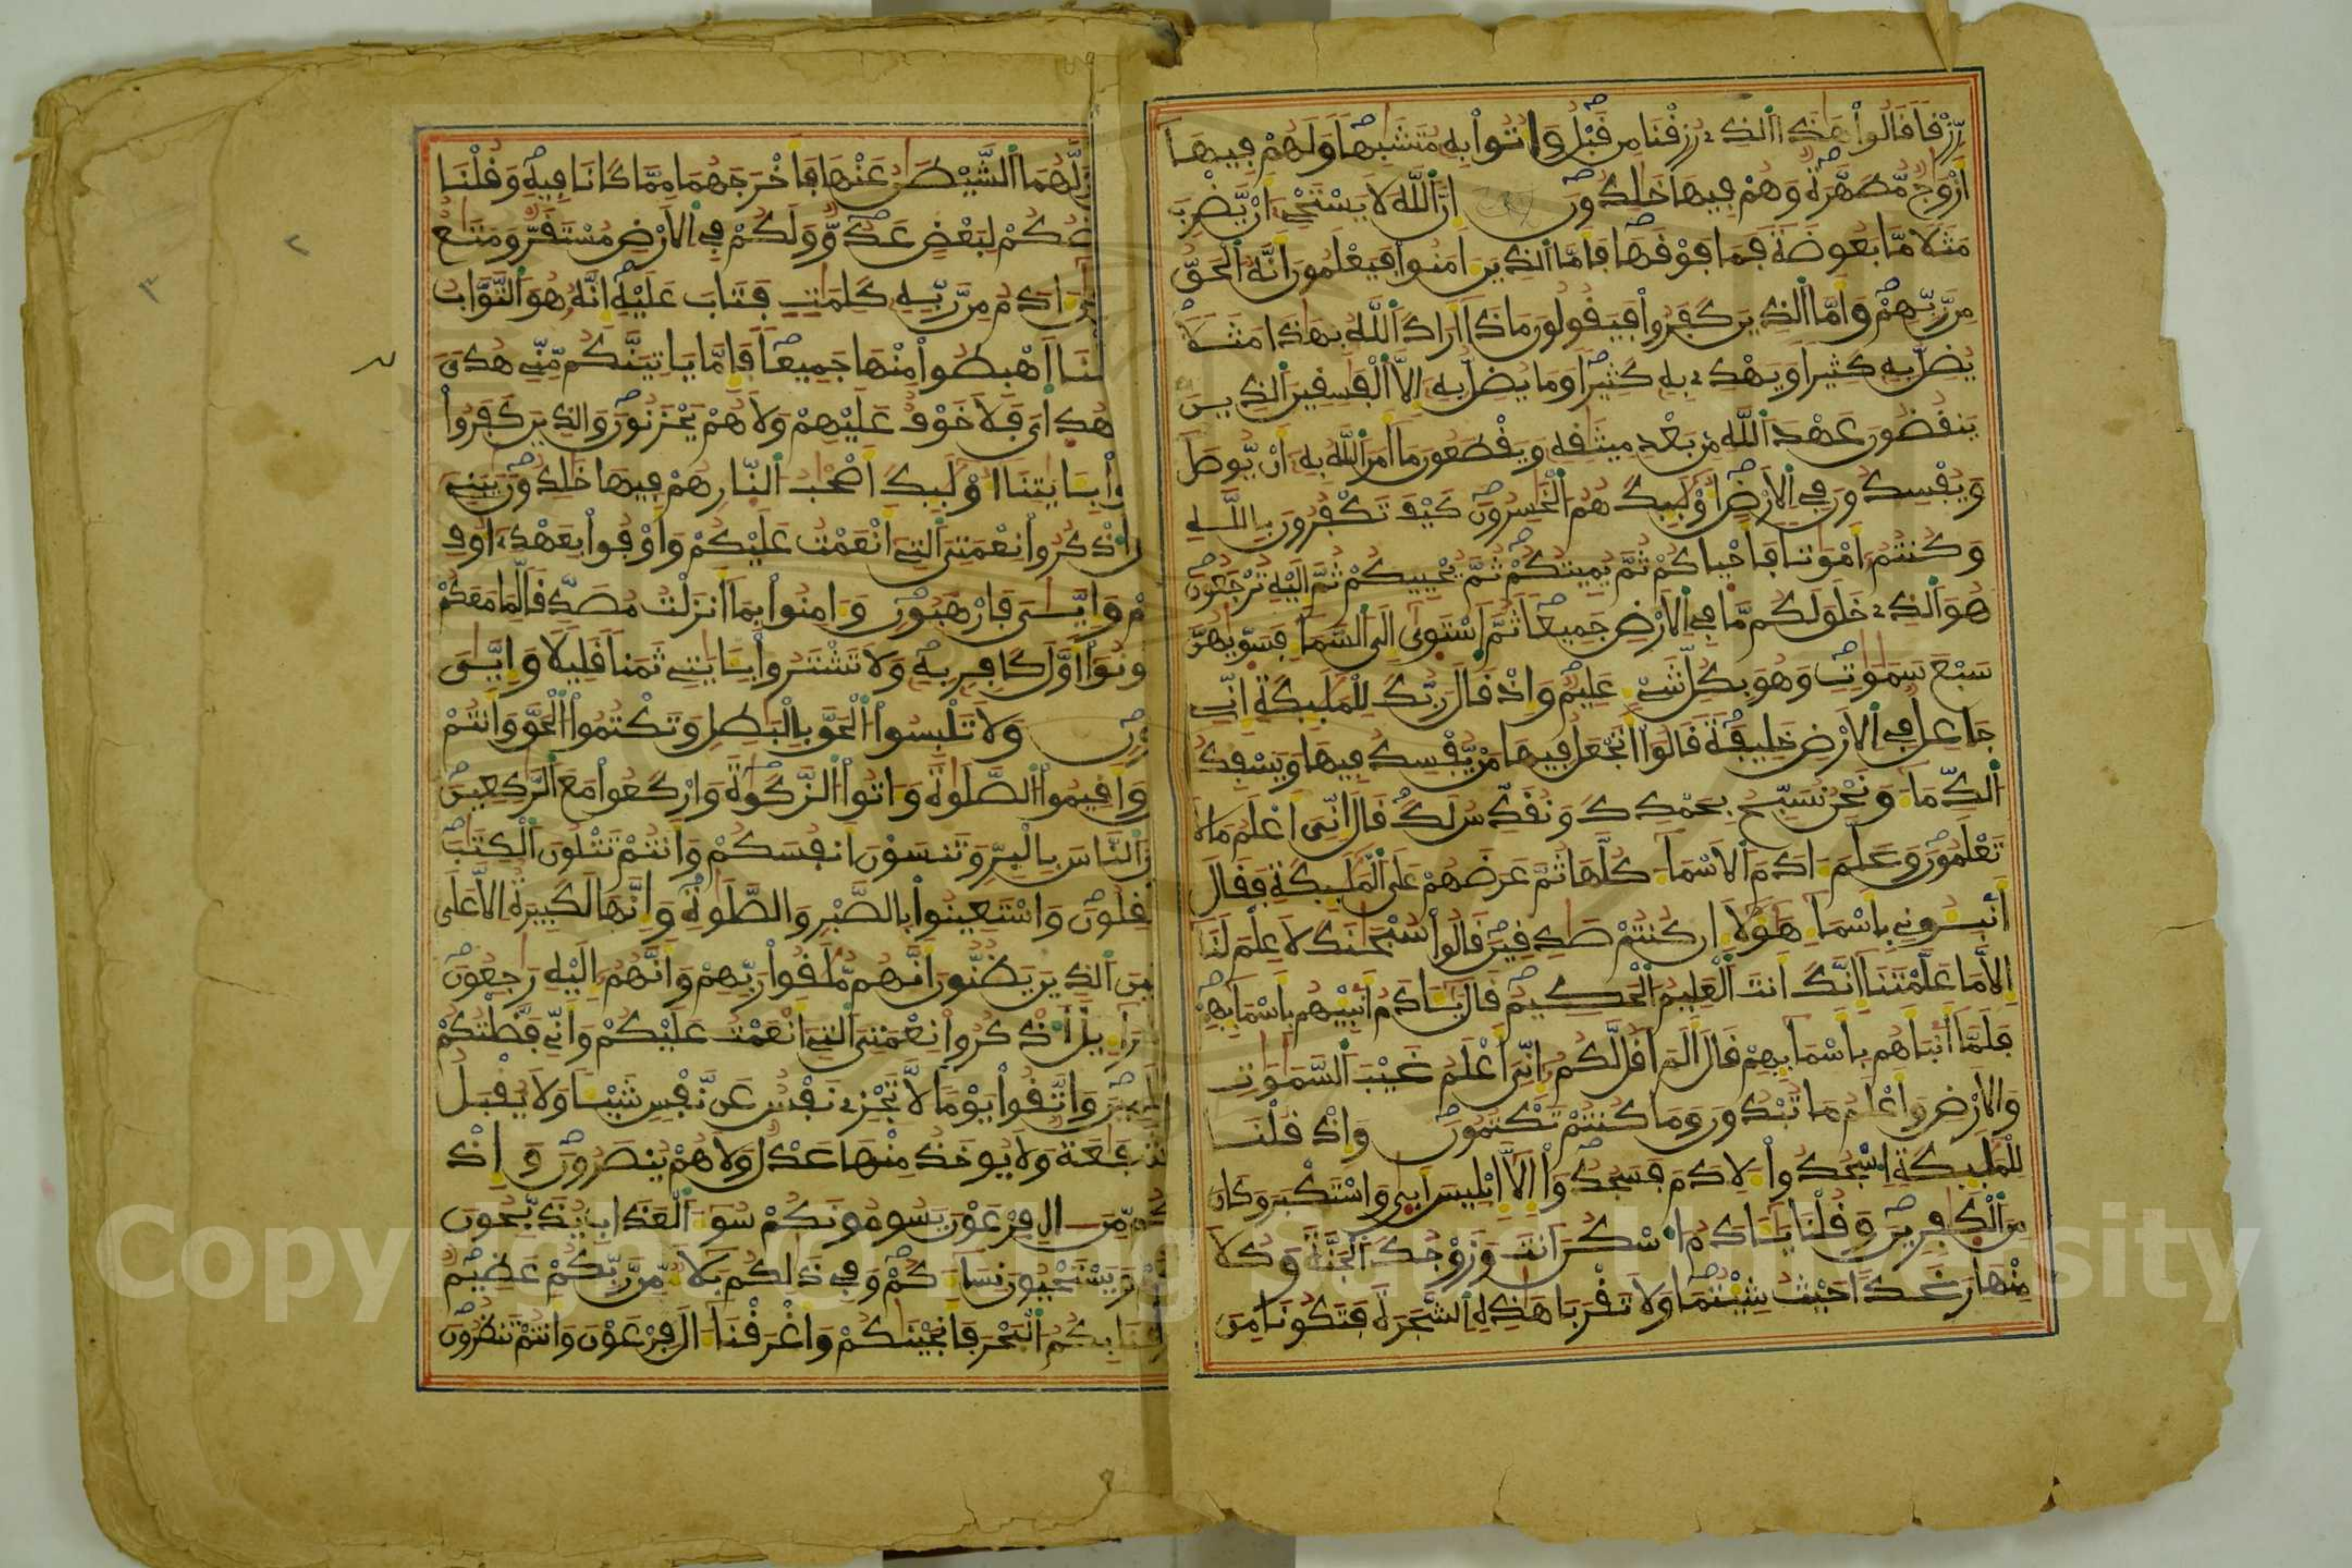 رزقا قالوا هذا الذي رزقنا من قبل واتوا به متشبها ولهم فيها
ازوج مطهرة وهم فيها خلدون ان الله لا يستحي ان يضرب
مثلا ما بعوضة فما فوقها فاما الذين امنوا فيعلمون انه الحق
من ربهم واما الذين كفروا فيقولون ماذا اراد الله بهاذا مثلا
يضل به كثيرا ويهدي به كثيرا وما يضل به الا الفسقين الذين
ينقضون عهد الله من بعد ميثقه ويقطعون ما امر الله به ان يوصل
ويفسدون في الارض اوليك هم الخسرون كيف تكفرون بالله
وكنتم اموتا فاحياكم ثم يميتكم ثم يحييكم ثم اليه ترجعون
هو الذي خلق لكم ما في الارض جميعا ثم استوى الى السما فسويهن
سبع سموت وهو بكل شيء عليم واذ قال ربك للمليكة اني
جاعل في الارض خليفة قالوا اتجعل فيها من يفسد فيها ويسفك
الدما ونحن نسبح بحمدك ونقدس لك قال اني اعلم ما لا
تعلمون وعلم ادم الاسما كلها ثم عرضهم على المليكة فقال
انبوني باسما هولا ان كنتم صدقين قالوا سبحنك لا علم لنا
الا ما علمتنا انك انت العليم الحكيم قال يادم انبيهم باسمايهم
فلما انباهم باسمايهم قال الم اقل لكم اني اعلم غيب السموت
والارض واعلم ما تبدون وما كنتم تكتمون واذ قلنا
للمليكة اسجدوا لادم فسجدوا الا ابليس ابى واستكبر وكان
من الكفرين وقلنا يادم اسكن انت وزوجك الجنة وكلا
منها رغدا حيث شيتما ولا تقربا هذه الشجرة فتكونا من
الشيطن عنها فاخرجهما مما كانا فيه وقلنا
لبعض عدو ولكم في الارض مستقر ومتع
ادم من ربه كلمت فتاب عليه انه هو التواب
اهبطوا منها جميعا فاما ياتينكم مني هدى
هداي فلا خوف عليهم ولا هم يحزنون والذين كفروا
بايتنا اوليك اصحب النار هم فيها خلدون يبني
اذكروا نعمتي التي انعمت عليكم واوفوا بعهدي اوف
وايي فارهبون وامنوا بما انزلت مصدقا لما معكم
اول كافر به ولا تشتروا بايتي ثمنا قليلا وايي
ولا تلبسوا الحق بالبطل وتكتموا الحق وانتم
واقيموا الصلوة واتوا الزكوة واركعوا مع الركعين
الناس بالبر وتنسون انفسكم وانتم تتلون الكتب
واستعينوا بالصبر والصلوة وانها لكبيرة الا على
الذين يظنون انهم ملقوا ربهم وانهم اليه رجعون
اذكروا نعمتي التي انعمت عليكم واني فضلتكم
واتقوا يوما لا تجزي نفس عن نفس شيا ولا يقبل
ولا يوخذ منها عدل ولا هم ينصرون واذ
من ال فرعون يسومونكم سو العذاب يذبحون
ويستحيون نساكم وفي ذلكم بلا من ربكم عظيم
بكم البحر فانجينكم واغرقنا ال فرعون وانتم تنظرون
Copyright © King Saud University